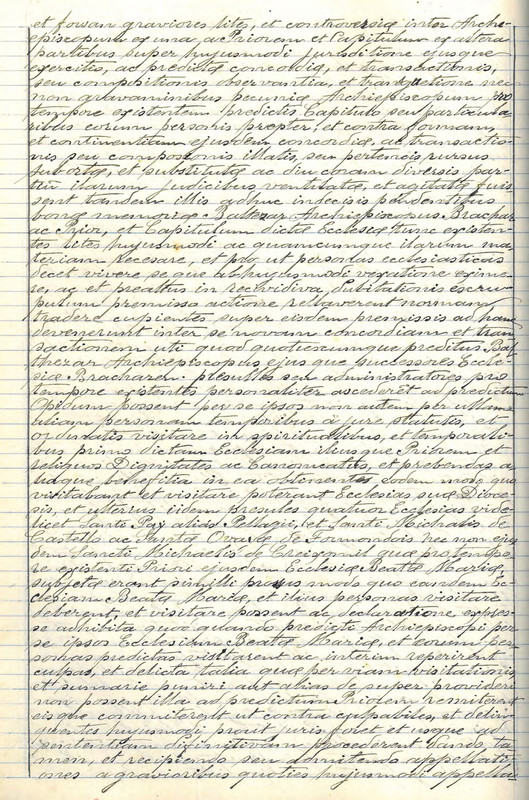 et forsam graviores lites, et controversiæ inter Archi-
episcopum ex una, ac Priorem et Capitulum ex altera
partibus super hujusmodi jurisditione ejusque
exercitio, ac predictæ concordiæ, et transactionis,
seu compositionis observantia, et transgretione nec
non gravaminibus pecuniæ Archiepiscopum pro
tempore existentem predictis Capitulo seu particula
ribus eorum personis propter, et contra formam
et continentiam ejusdem concordiæ, ac transactio-
nis seu compositonis illatis, seu pertencis rursus
subortæ, et substitutæ ac diu coram diversis par-
tiũ illarum judicibus ventilatæ, et agitatæ fuis
sent tandem illis adhuc indecisis pendentibus
bonæ memoriæ Baltezar Archiepiscopus Brachar
ac Prior, et Capitulum dictæ Ecclesiæ tunc existen-
tes lites hujusmodi ac quamcumque illarum ma-
teriam resecare, et pro ut personas ecclesiasticas
decet vivere se que ab hujusmodi vexatione exime-
re, ac et preattis in rechidiva dubitationis escru-
pulum premissa actione relaverent normam
tradere cupientes super eisdem premissis ad hanc
devenerunt inter se novam concordiam et tran
sactionem uti quod quotiescumque preditus Bal
thezar Archiepiscopus ejus que successores Eccle-
siæ Bracharen: presultes seu administratores pro
tempore existentes personaliter accederet ad predictum
Opedum possent per se ipsos non autem per ullam
aliam personam temporibus a jure statutis, et
ordinatis visitare in spiritualibus, et temporali-
bus primo dictam Ecclesiam illiusque Priorem et
reliquos Dignitates ac Canonicatus, et prebendas a
liaque benefitia in ea obtinentes eodem modo quo
visitabant et visitare poterant Ecclesias suæ Dioce-
sis, et ulterius iidem presules quatuor Ecclesias vide
licet Santi Pay alias Pellagii, et Santi Michaelis de
Castello ac Santæ Ovaiæ de Formondois nec non ejus
dem Sancti Michaelis de Creixomil quæ pro tempo
re existenti Priori ejusdem Ecclesiæ Beatæ Mariæ,
subjectæ erant simili prorsus modo quo eandem Ec-
clesiam Beatæ Mariæ, et illius personas visitare
deberent, et visitare possent ac declaratione expres-
se adhibita quod quando predicti Archiepiscopi per
se ipsos Ecclesiam Beatæ Mariæ, et eorum per-
sonas predictas visitarent ac interim reperirent
culpas, et delicta talia quæ per viam visitationis,
et sumarie puniri aut alias de super provideri
non possent illa ad predictum Priorem remitterent
eisque committerent ut contra culpabiles, et delin-
quentes hujusmodi, prout juris foret et usque ad
sententiam difinitivam procederent dando, ta
men, et recipiendo seu admitendo appellati-
ones a gravioribus quoties hujusmodi appella